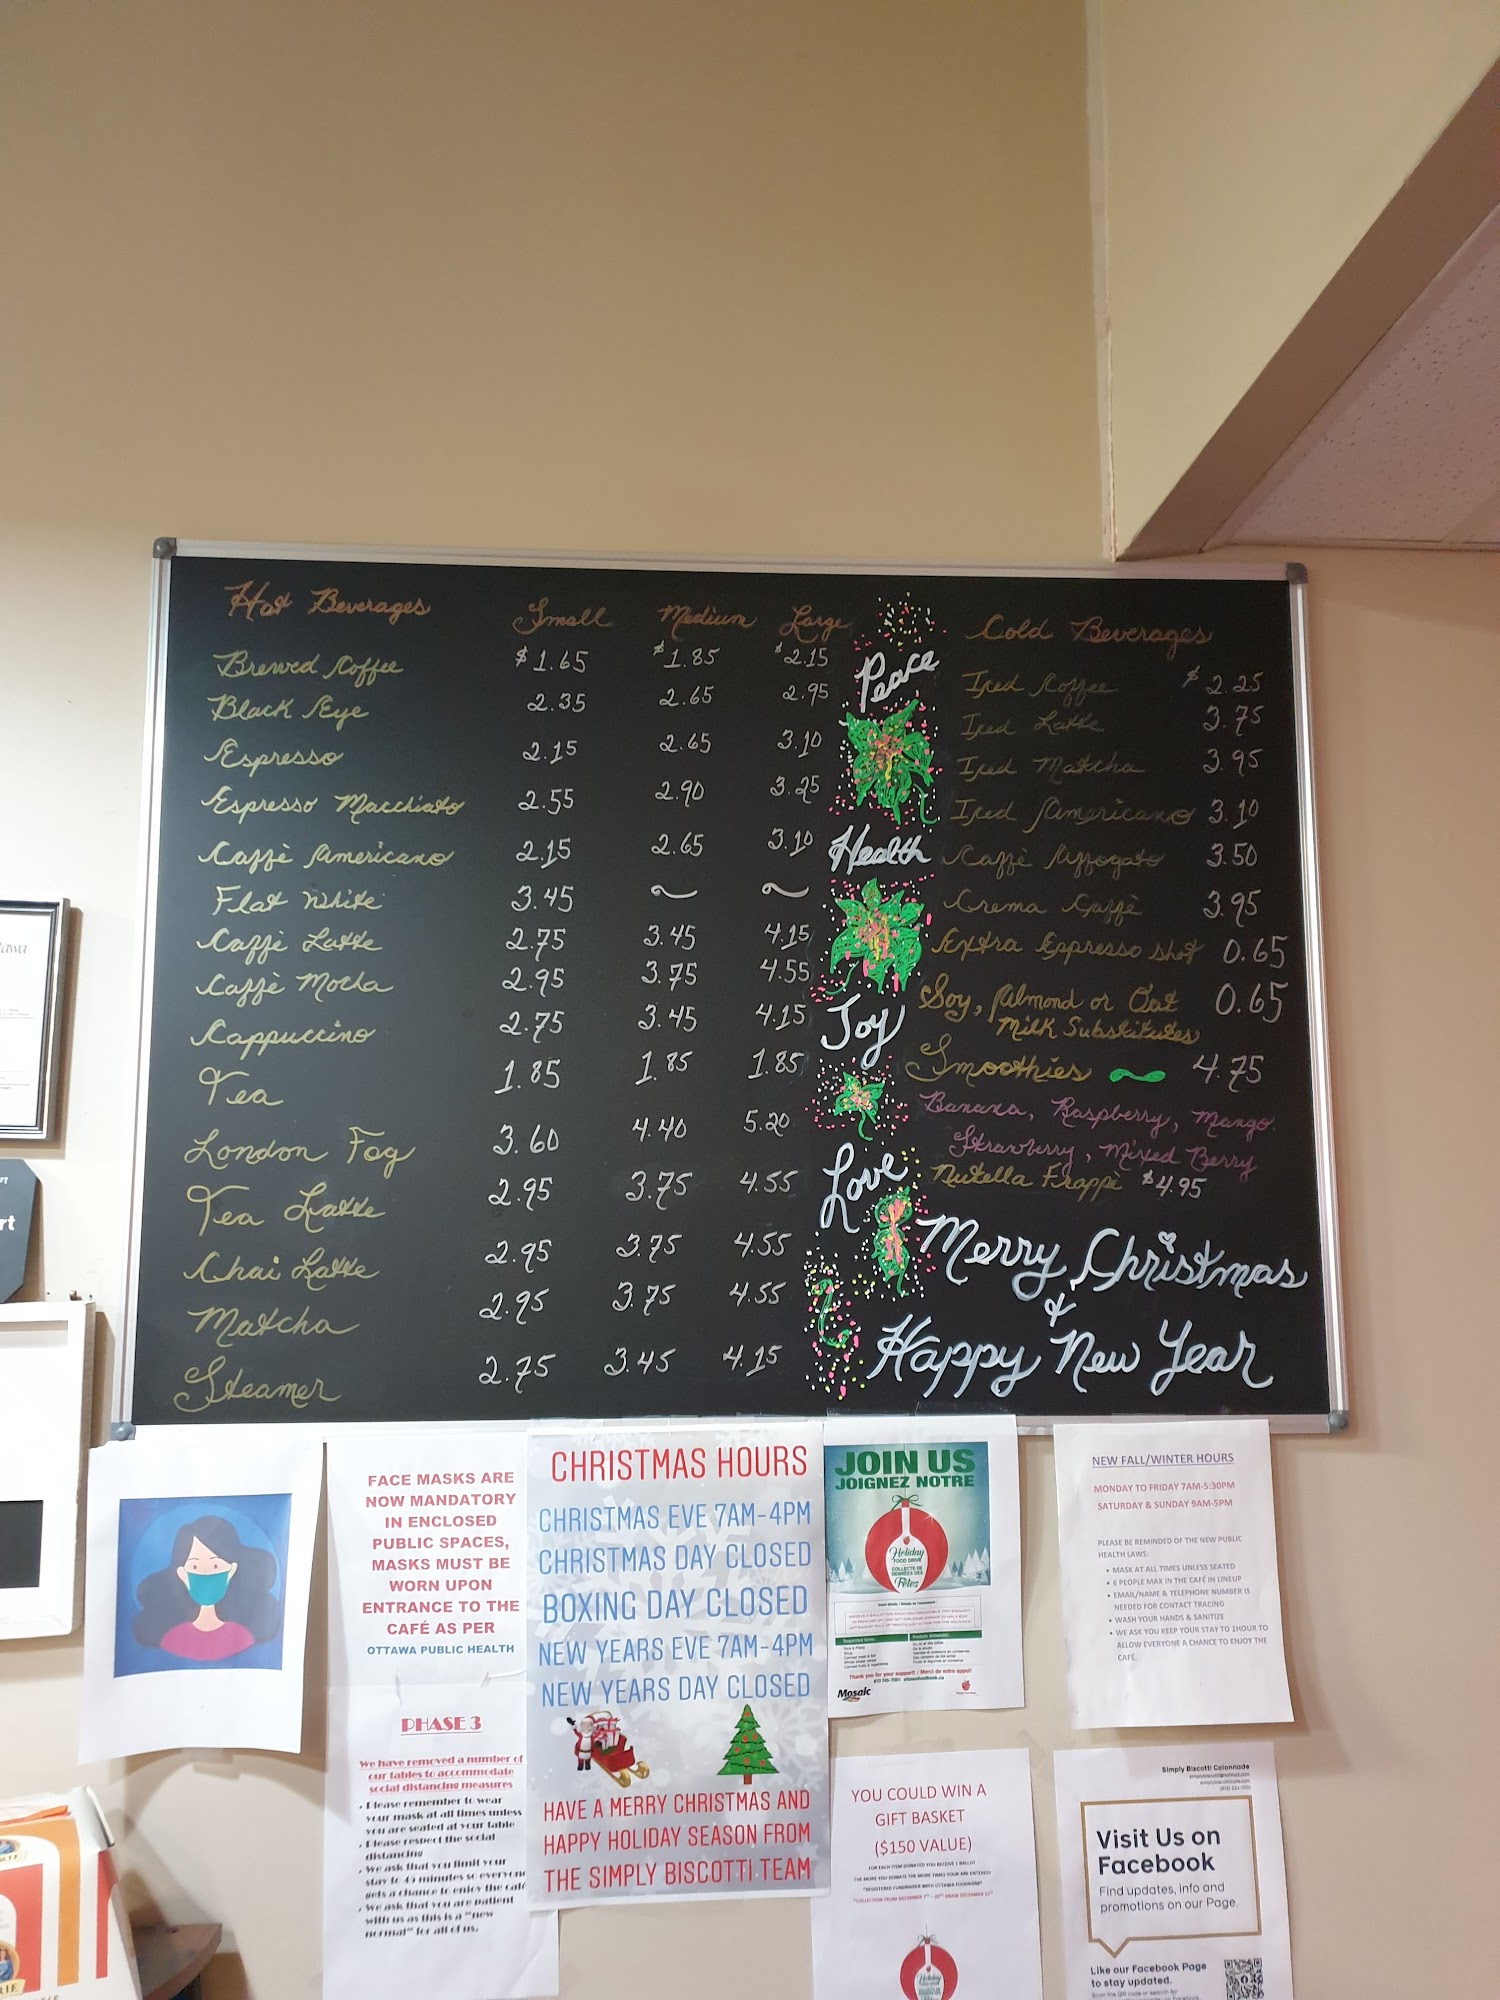 Hot Beverages Small Medium Large
Brewed Coffee $1.65 $1.85 $2.15
Black Eye 2.35 2.65 2.95
Espresso 2.15 2.65 3.10
Espresso Macchiato 2.55 2.90 3.25
Caffè Americano 2.15 2.65 3.10
Flat White 3.45 ~ ~
Caffè Latte 2.75 3.45 4.15
Caffè Mocha 2.95 3.75 4.55
Cappuccino 2.75 3.45 4.15
Tea 1.85 1.85 1.85
London Fog 3.60 4.40 5.20
Tea Latte 2.95 3.75 4.55
Chai Latte 2.95 3.75 4.55
Matcha 2.95 3.75 4.55
Steamer 2.75 3.45 4.15
Peace
Health
Joy
Love
Cold Beverages
Iced Coffee $2.25
Iced Latte 3.75
Iced Matcha 3.95
Iced Americano 3.10
Caffè Affogato 3.50
Crema Caffè 3.95
Extra Espresso shot 0.65
Soy, Almond or Oat 0.65
Milk Substitutes
Smoothies ~ 4.75
Banana, Raspberry, Mango.
Strawberry, Mixed Berry
Nutella Frappè $4.95
Merry Christmas
&
Happy New Year
FACE MASKS ARE
NOW MANDATORY
IN ENCLOSED
PUBLIC SPACES,
MASKS MUST BE
WORN UPON
ENTRANCE TO THE
CAFÉ AS PER
OTTAWA PUBLIC HEALTH
PHASE 3
We have removed a number of
our tables to accommodate
social distancing measures
• Please remember to wear
your mask at all times unless
you are seated at your table
• Please respect the social
distancing
• We ask that you limit your
stay to 45 minutes so everyone
gets a chance to enjoy the café
• We ask that you are patient
with us as this is a "new
normal" for all of us.
CHRISTMAS HOURS
CHRISTMAS EVE 7AM-4PM
CHRISTMAS DAY CLOSED
BOXING DAY CLOSED
NEW YEARS EVE 7AM-4PM
NEW YEARS DAY CLOSED
HAVE A MERRY CHRISTMAS AND
HAPPY HOLIDAY SEASON FROM
THE SIMPLY BISCOTTI TEAM
JOIN US
JOIGNEZ NOTRE
Holiday
FOOD DRIVE
COLLECTE DE
DENRÉES DES
Fêtes
Thank you for your support! / Merci de votre appui!
Mosaic
YOU COULD WIN A
GIFT BASKET
($150 VALUE)
FOR EACH ITEM DONATED YOU RECEIVE 1 BALLOT
THE MORE YOU DONATE THE MORE TIMES YOUR ARE ENTERED!
*REGISTERED FUNDRAISER WITH OTTAWA FOODBANK*
Holiday
NEW FALL/WINTER HOURS
MONDAY TO FRIDAY 7AM-5:30PM
SATURDAY & SUNDAY 9AM-5PM
PLEASE BE REMINDED OF THE NEW PUBLIC
HEALTH LAWS:
• MASK AT ALL TIMES UNLESS SEATED
• 6 PEOPLE MAX IN THE CAFÉ IN LINEUP
• EMAIL/NAME & TELEPHONE NUMBER IS
NEEDED FOR CONTACT TRACING
• WASH YOUR HANDS & SANITIZE
• WE ASK YOU KEEP YOUR STAY TO 1HOUR TO
ALLOW EVERYONE A CHANCE TO ENJOY THE
CAFÉ.
Simply Biscotti Colonnade
Visit Us on
Facebook
Find updates, info and
promotions on our Page.
Like our Facebook Page
to stay updated.